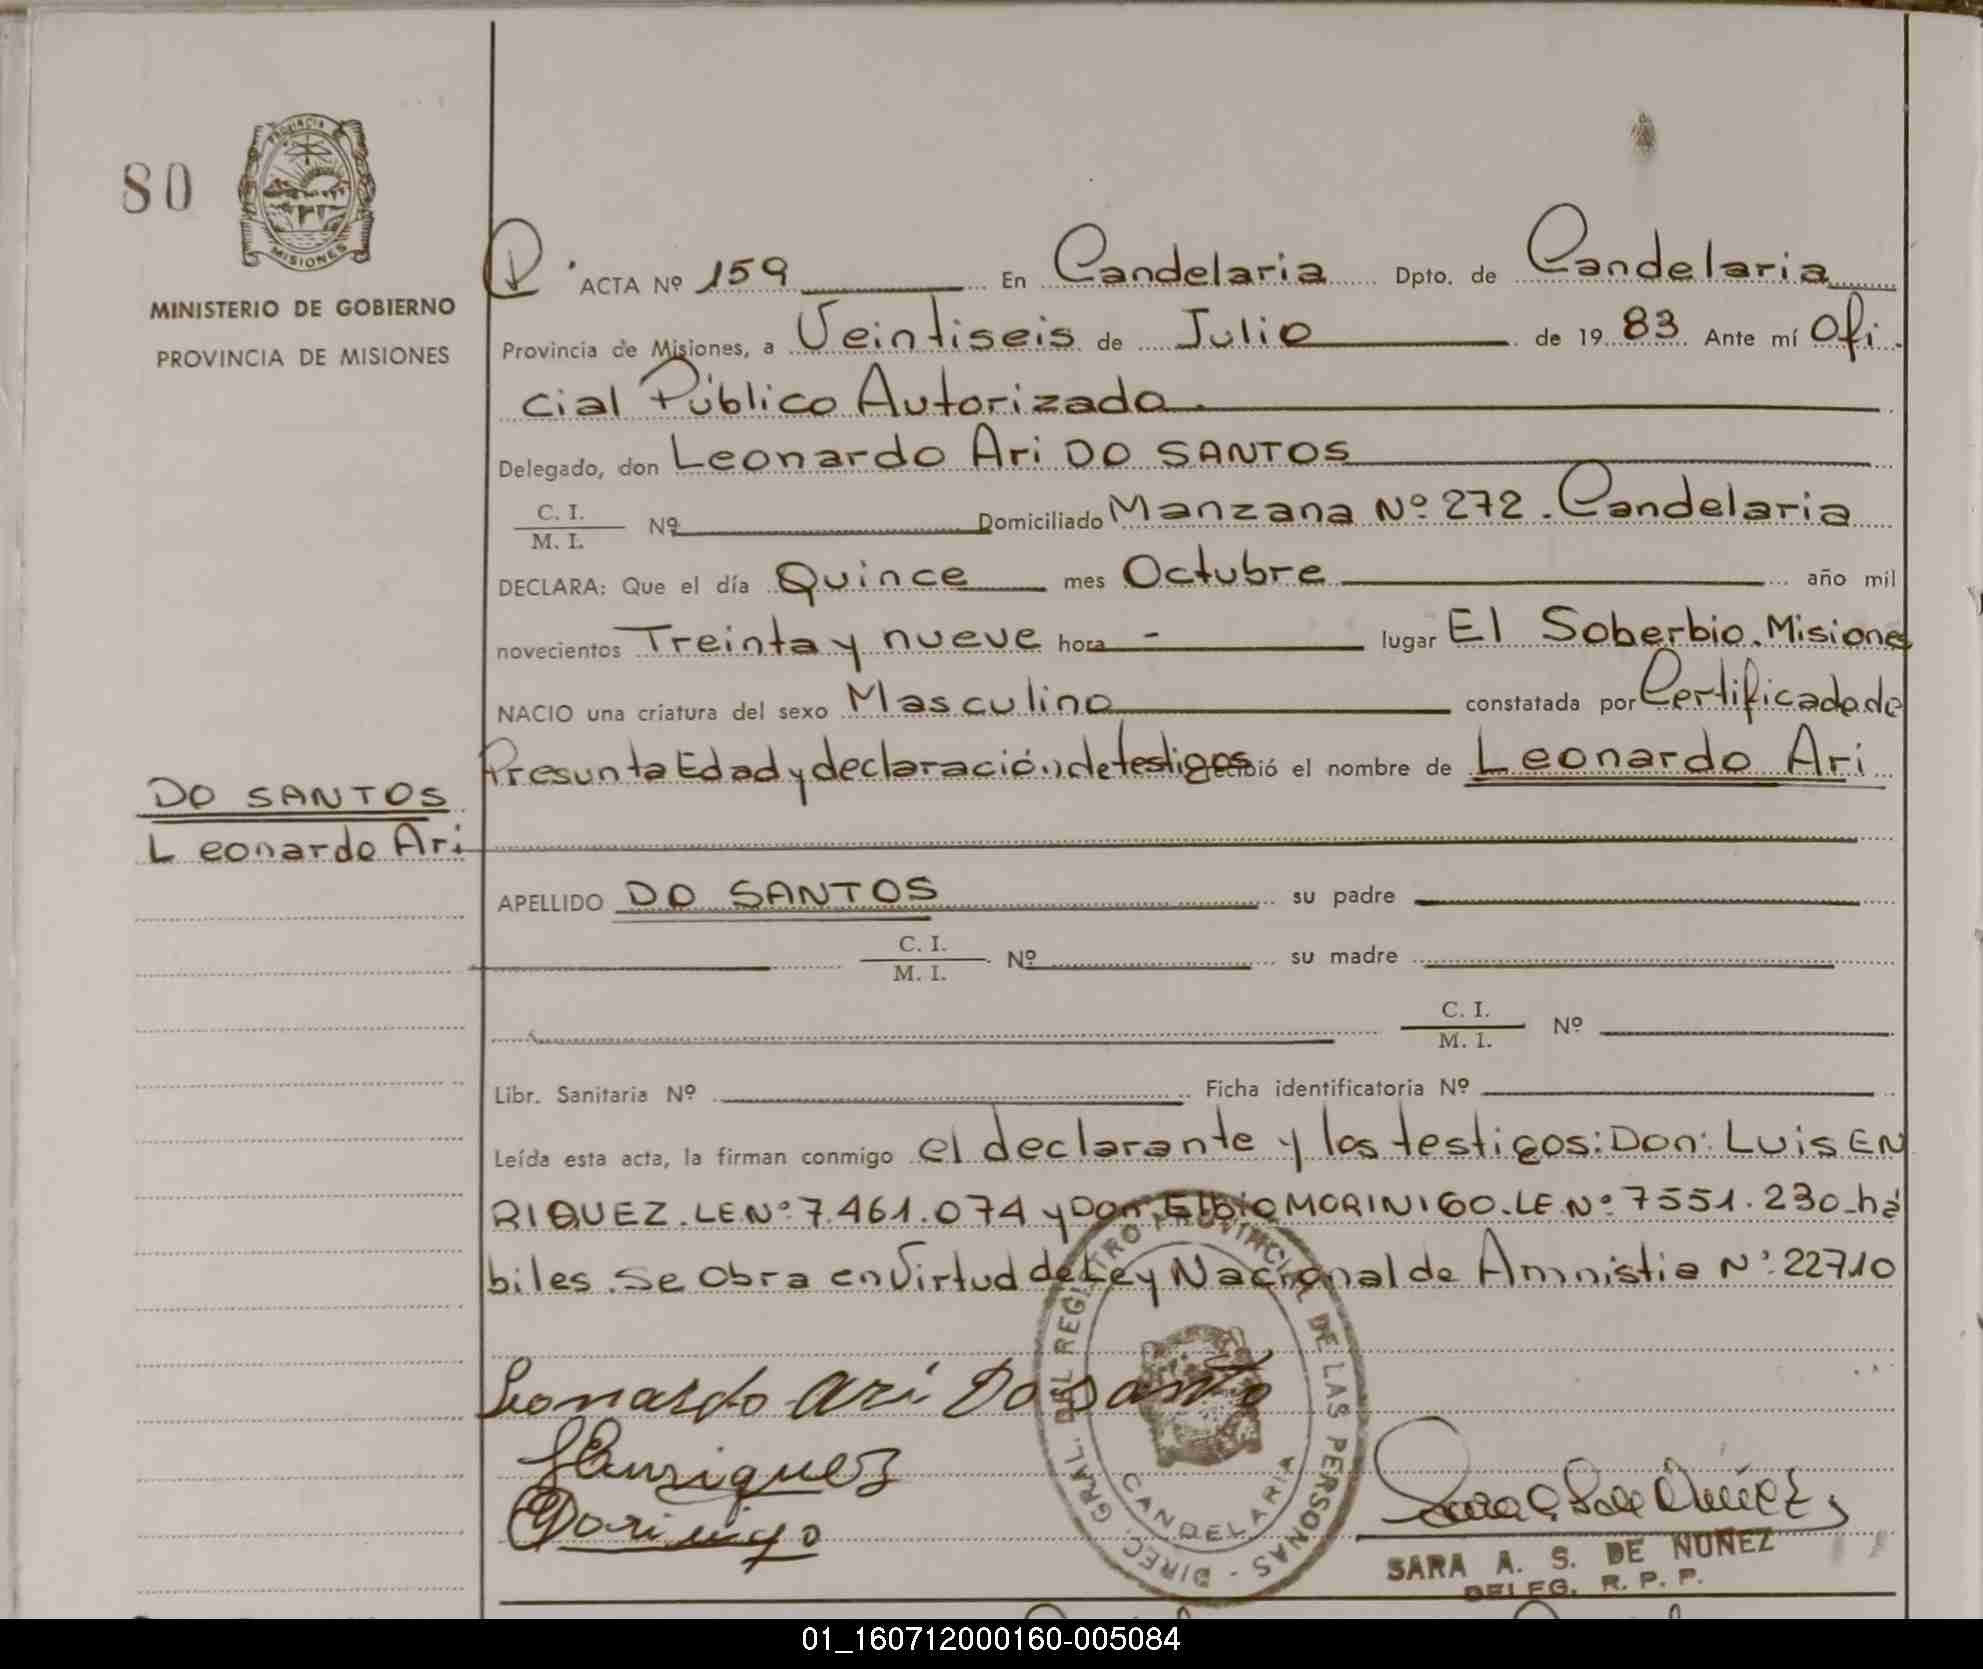 80
PROVINCIA
MISIONES
MINISTERIO DE GOBIERNO
PROVINCIA DE MISIONES
ACTA Nº 159 En Candelaria Dpto. de Candelaria
Provincia de Misiones, a Veintiseis de Julio de 1983 Ante mí Ofi
cial Público Autorizado.
Delegado, don Leonardo Ari DO SANTOS
C. I.
M. I. Nº Domiciliado Manzana Nº 272. Candelaria
DECLARA: Que el día Quince mes Octubre año mil
novecientos Treinta y nueve hora - lugar El Soberbio. Misiones
NACIO una criatura del sexo Masculino constatada por Certificado de
Presunta Edad y declaración de testigos el nombre de Leonardo Ari
DO SANTOS
Leonardo Ari
APELLIDO DO SANTOS su padre
C. I.
M. I. Nº su madre
C. I.
M. I. Nº
Libr. Sanitaria Nº Ficha identificatoria Nº
Leída esta acta, la firman conmigo el declarante y los testigos: Don: Luis EN
RIQUEZ. LE Nº 7.461.074 y Don: Elbio MORINIGO. LE Nº 7551.230_há
biles. Se Obra en Virtud de Ley Nacional de Amnistia Nº 22710
Leonardo Ari Do Santo
DIREC. GRAL. DEL REGISTRO PROVINCIAL DE LAS PERSONAS -
CANDELARIA
SARA A. S. DE NUÑEZ
DELEG. R. P. P.
01_160712000160-005084